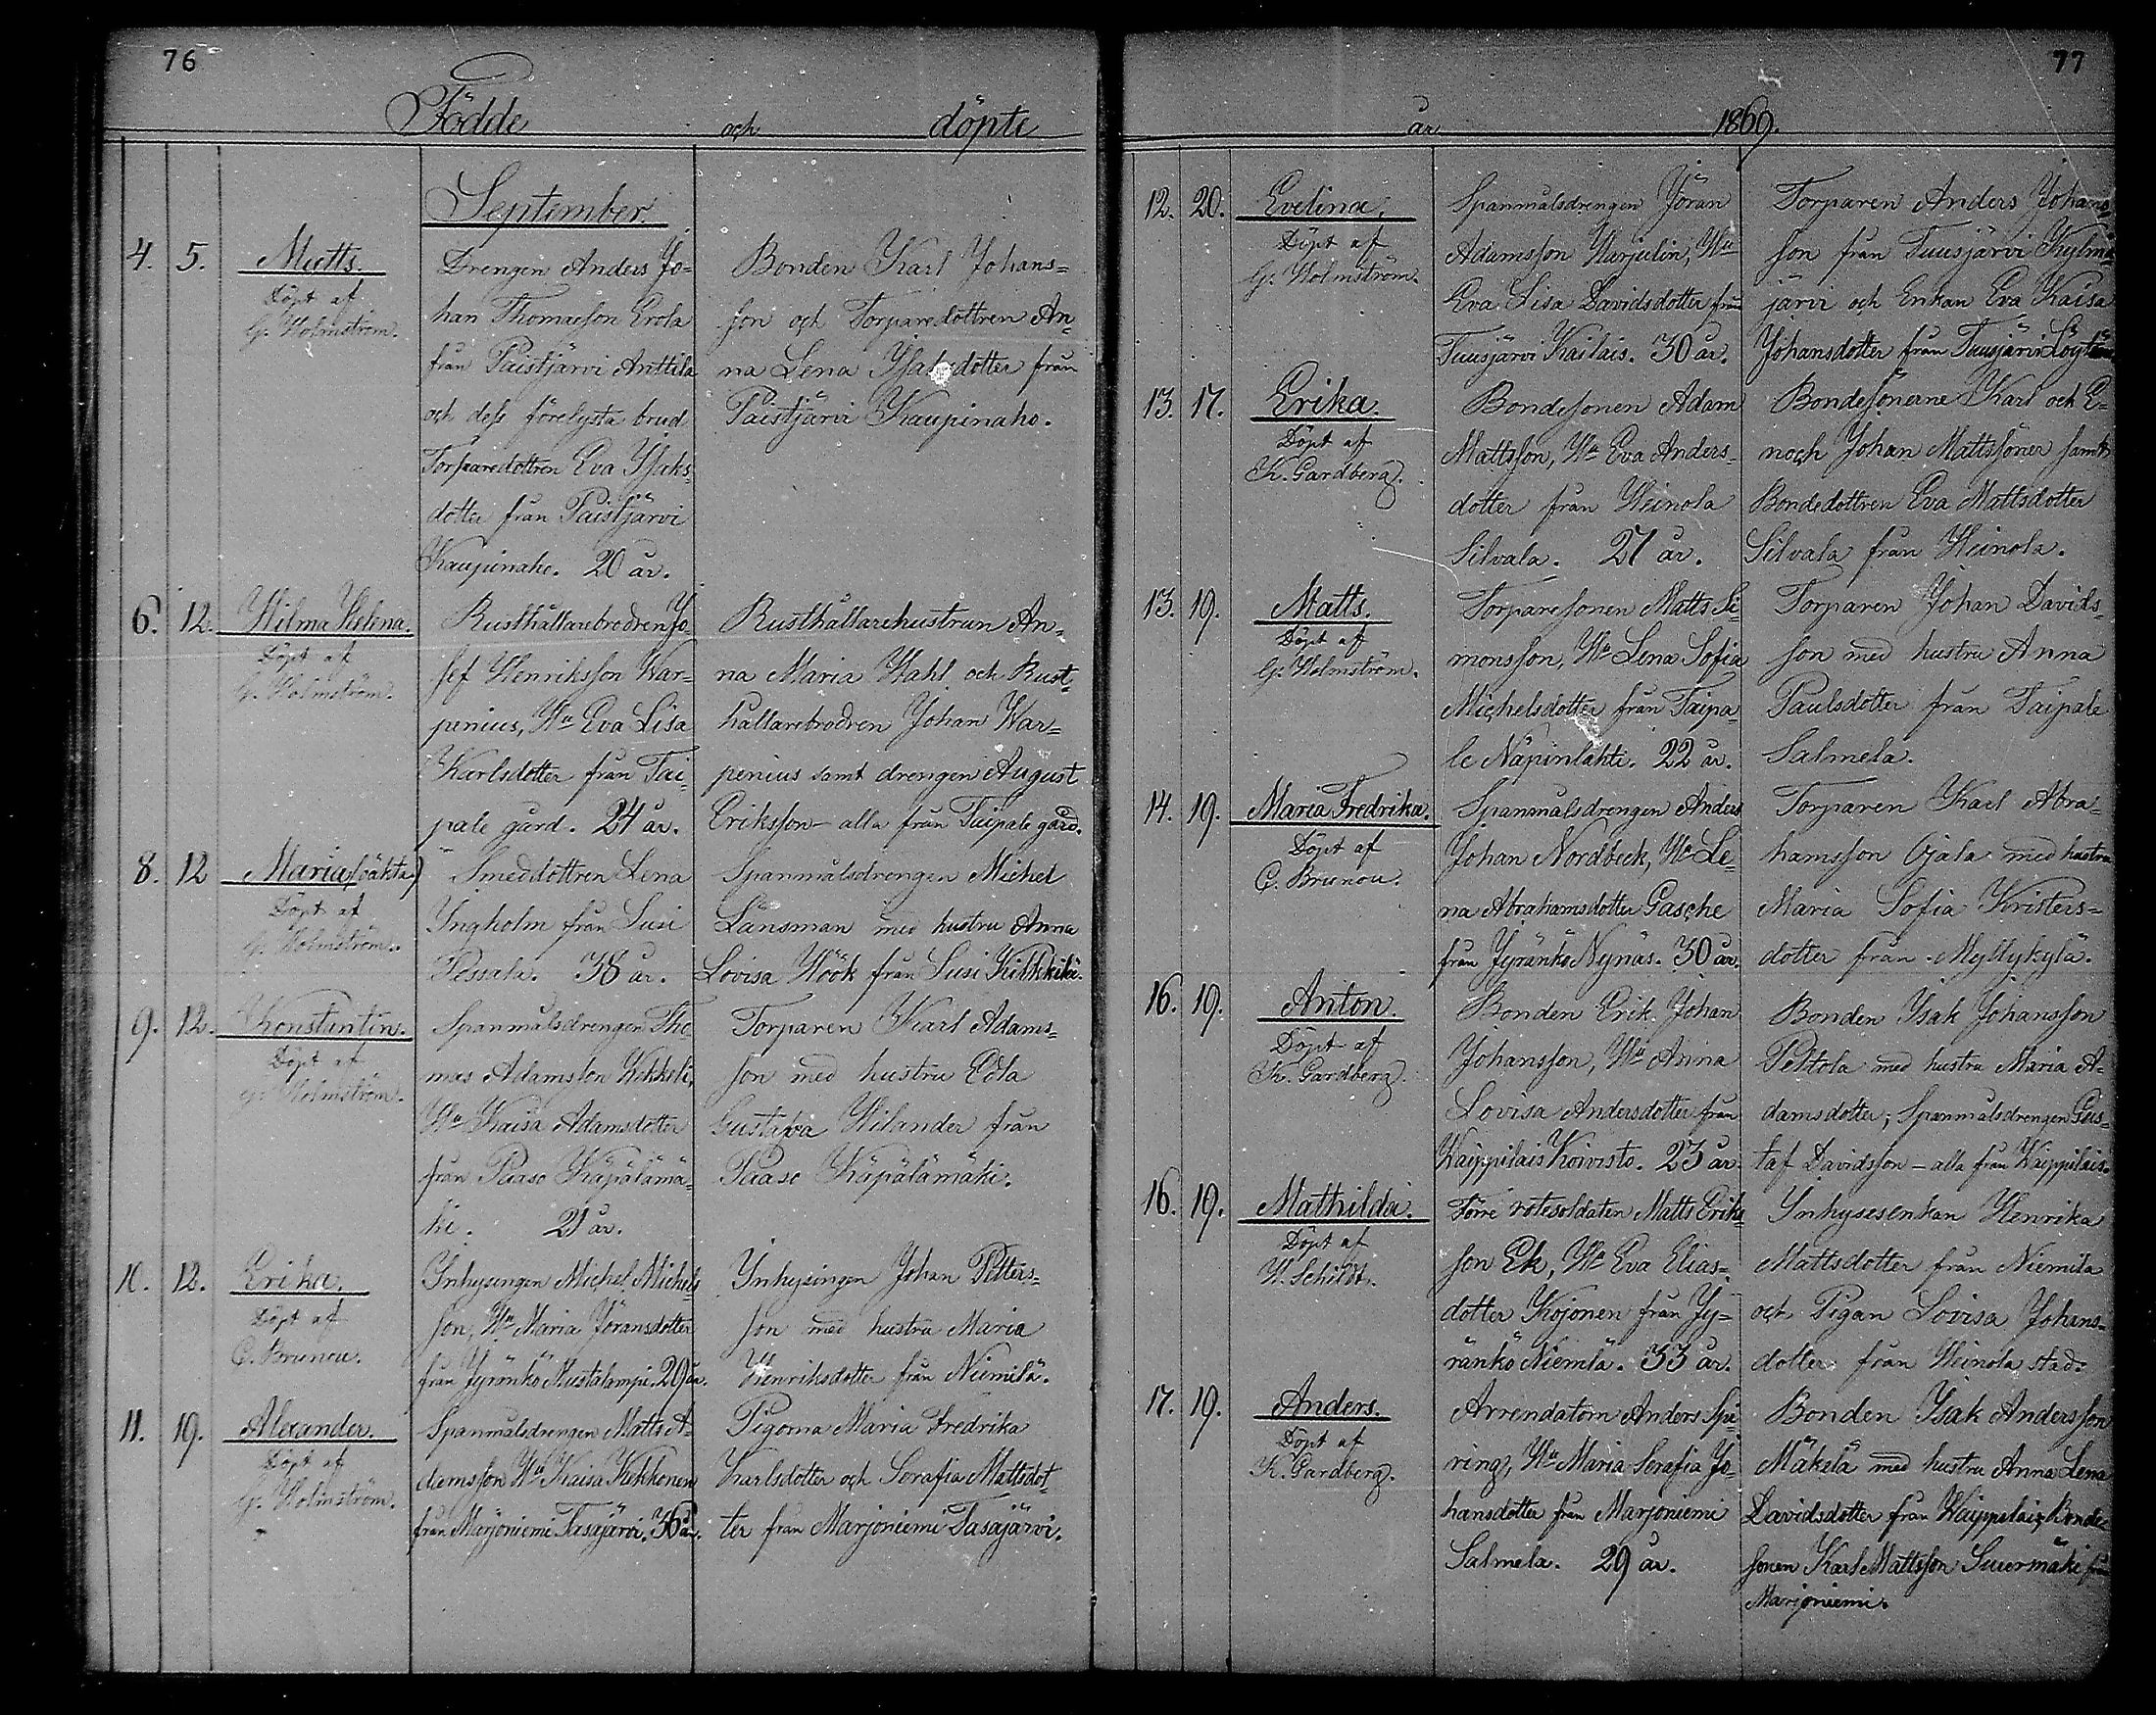 76
Födde och döpte
September.
4. 5. Matts.
Döpt af
G. Holmström.
Drengen Anders Jo=
han Thomasson Erola
från Paistjärvi Anttila
och dess förelysta brud
Torparedottren Eva Isaks
dotter från Paistjärvi
Kaupinaho. 20 år.
Bonden Karl Johans=
son och Torparedottren An=
na Lena Isaksdotter från
Paistjärvi Kaupinaho.
6. 12. Hilma Helena.
Döpt af
G. Holmström.
Rusthållarebrodren Jo=
sef Henriksson War=
penius, Hu Eva Lisa
Karlsdotter från Tai
pale gård. 24 år.
Rusthållarehustrun An=
na Maria Wahl och Rust=
hållarebrodren Johan War=
penius samt drengen August
Eriksson – alla från Taipale gård.
8. 12 Maria (oäkta)
Döpt af
G. Holmström.
Smeddottren Lena
Yngholm från Lusi
Pessala. 38 år.
Spanmålsdrengen Michel
Länsman med hustru Anna
Lovisa Höök från Lusi
9. 12. Konstantin.
Döpt af
G. Holmström.
Spanmålsdrengen Tho
mas Adamsson
Hu Kaisa Adamsdotter
från Paaso Käpälämä=
ki. 21 år.
Torparen Karl Adams=
son med hustru Edla
Gustafva Wilander från
Paaso Käpälämäki.
10. 12. Erika.
Döpt af
C. Brunou.
Inhysingen Michel Michels
son, Hu Maria Göransdotter
från Jyränkö Mustalampi. 29 år.
Inhysingen Johan Petters=
son med hustru Maria
Henriksdotter från Niemilä.
11. 19. Alexander.
Döpt af
G. Holmström.
Spanmålsdrengen Matts A=
damsson Hu Kaisa Kekkonen
från Marjoniemi Tasajärvi. 36 år.
Pigorna Maria Fredrika
Karlsdotter och Serafia Mattsdot
ter från Marjoniemi Tasajärvi.
77
år 1869.
12. 20. Evelina.
Döpt af
G. Holmström.
Spanmålsdrengen Jöran
Adamsson Harjulin, Hu
Eva Lisa Davidsdotter från
Tuusjärvi Kailais. 30 år.
Torparen Anders Johans=
son från Tuusjärvi Kylmä
järvi och Enkan Eva Kaisa
Johansdotter från Tuusjärvi
13. 17. Erika.
Döpt af
K. Gardberg.
Bondesonen Adam
Mattsson, Hu Eva Anders=
dotter från Heinola
Silvala. 27 år.
Bondesönerne Karl och E=
noch Johan Mattssöner samt
Bondedottren Eva Mattsdotter
Silvala från Heinola.
13. 19. Matts.
Döpt af
G. Holmström.
Torparesonen Matts Si
monsson, Hu Lena Sofia
Michelsdotter från Taipa
le Näpinlahti. 22 år.
Torparen Johan Davids=
son med hustru Anna
Paulsdotter från Taipale
Salmela.
14. 19. Maria Fredrika.
Döpt af
C. Brunou.
Spanmålsdrengen Anders
Johan Nordbeck, Hu Le=
na Abrahamsdotter Gasche
från Jyränkö Nynäs. 30 år.
Torparen Karl Abra=
hamsson Ojala med hustru
Maria Sofia Kristers=
dotter från Myllykylä.
16. 19. Anton.
Döpt af
K. Gardberg.
Bonden Erik Johan
Johansson, Hu Anna
Lovisa Andersdotter från
Waippilais Koivisto. 23 år.
Bonden Isak Johansson
Peltola med hustru Maria A=
damsdotter; Spanmålsdrengen Gus=
taf Davidsson – alla från Waippilais.
16. 19. Mathilda.
Döpt af
W. Schildt.
Förre rotesoldaten Matts Eriks
son Ek, Hu Eva Elias=
dotter Kojonen från Jy=
ränkö Niemlä. 33 år.
Inhysesenkan Henrika
Mattsdotter från Niemilä
och Pigan Lovisa Johans=
dotter från Heinola stad.
17. 19. Anders.
Döpt af
K. Gardberg.
Arrendatorn Anders Spi
ring, Hu Maria Serafia Jo=
hansdotter från Marjoniemi
Salmela. 29 år.
Bonden Isak Andersson
Mäkelä med hustru Anna Lena
Davidsdotter från Waippilais, Bonde
sonen Karl Mattsson Suurmäki från
Marjoniemi.